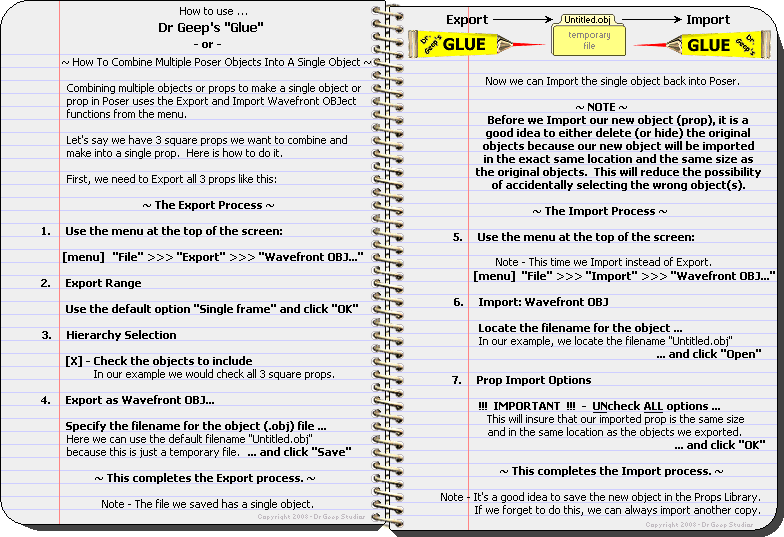 How to use ...
Dr Geep's "Glue"
- or -
~ How To Combine Multiple Poser Objects Into A Single Object ~
Combining multiple objects or props to make a single object or
prop in Poser uses the Export and Import Wavefront OBJect
functions from the menu.
Let's say we have 3 square props we want to combine and
make into a single prop. Here is how to do it.
First, we need to Export all 3 props like this:
~ The Export Process ~
1. Use the menu at the top of the screen:
[menu] "File" >>> "Export" >>> "Wavefront OBJ..."
2. Export Range
Use the default option "Single frame" and click "OK"
3. Hierarchy Selection
[X] - Check the objects to include
In our example we would check all 3 square props.
4. Export as Wavefront OBJ...
Specify the filename for the object (.obj) file ...
Here we can use the default filename "Untitled.obj"
because this is just a temporary file. ... and click "Save"
~ This completes the Export process. ~
Note - The file we saved has a single object.
Copyright 2008 - Dr Geep Studios
Export Untitled.obj Import
Dr. Geep's GLUE
temporary
file
GLUE Dr. Geep's
Now we can Import the single object back into Poser.
~ NOTE ~
Before we Import our new object (prop), it is a
good idea to either delete (or hide) the original
objects because our new object will be imported
in the exact same location and the same size as
the original objects. This will reduce the possibility
of accidentally selecting the wrong object(s).
~ The Import Process ~
5. Use the menu at the top of the screen:
Note - This time we Import instead of Export.
[menu] "File" >>> "Import" >>> "Wavefront OBJ..."
6. Import: Wavefront OBJ
Locate the filename for the object ...
In our example, we locate the filename "Untitled.obj"
... and click "Open"
7. Prop Import Options
!!! IMPORTANT !!! - UNcheck ALL options ...
This will insure that our imported prop is the same size
and in the same location as the objects we exported.
... and click "OK"
~ This completes the Import process. ~
Note - It's a good idea to save the new object in the Props Library.
If we forget to do this, we can always import another copy.
Copyright 2008 - Dr Geep Studios